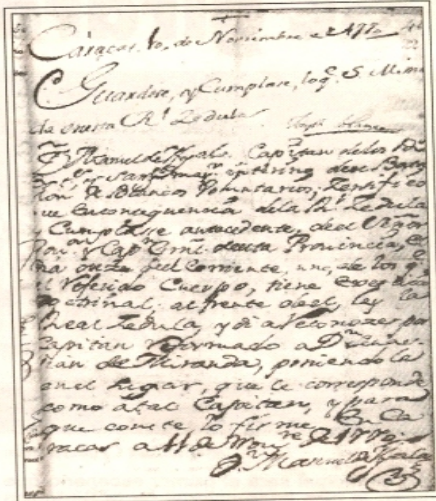 Caracas 10. de Noviembre de 1770
Guardese, y Cumplase, lo q.e S. M. m.
da en esta R.l Zedula
D.n Manuel de
Capitan de los
interino de el Bata
llon de Blancos Voluntarios; Zertifico
que en consequencia de la R.l Zedula
y Cumplase antecedente, de el Señor
Gov.or y Cap.n Gral. de esta Provincia, e
dia onze del corriente, uno, de los q.e
el referido Cuerpo, tiene
doctrinal. al frente de el, ley la
Real Zedula, y di a reconozer por
Capitan reformado a D.n Sebas
tian de Miranda, poniendole
en el lugar, que le corresponde
como a tal Capitan, y para
que conste lo firme en Ca
racas a 11 de Nov.re de 1770
D.n Manuel de